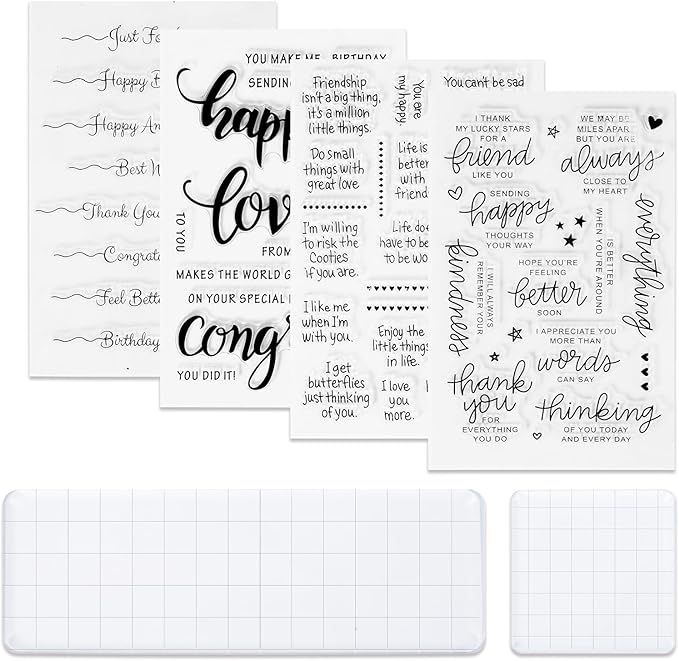 Just Fo
Happy
Happy An
Best
Thank You
Congrat
Feel Bett
Birthday
YOU MAKE ME
BIRTHDAY
SENDING
happ
love
TO YOU
FROM
MAKES THE WORLD G
ON YOUR SPECIAL
Cong
YOU DID IT!
Friendship
isn't a big thing,
it's a million
little things.
Do small
things with
great love
I'm willing
to risk the
Cooties
if you are.
I like me
when I'm
with you.
I get
butterflies
just thinking
of you.
You are
my happy.
You can't be sad
Life is
better
with
friend
Life do
have to be
to be wo
Enjoy the
little things
in life.
I love
you
more.
I THANK
MY LUCKY STARS
FOR A
friend
LIKE YOU
WE MAY BE
MILES APART
BUT YOU ARE
always
CLOSE TO
MY HEART
SENDING
happy
THOUGHTS
YOUR WAY
everything
IS BETTER
WHEN YOU'RE AROUND
kindness
I WILL ALWAYS
REMEMBER YOUR
HOPE YOU'RE
FEELING
better
SOON
I APPRECIATE YOU
MORE THAN
words
CAN SAY
thank
you
FOR
EVERYTHING
YOU DO
thinking
OF YOU TODAY
AND EVERY DAY